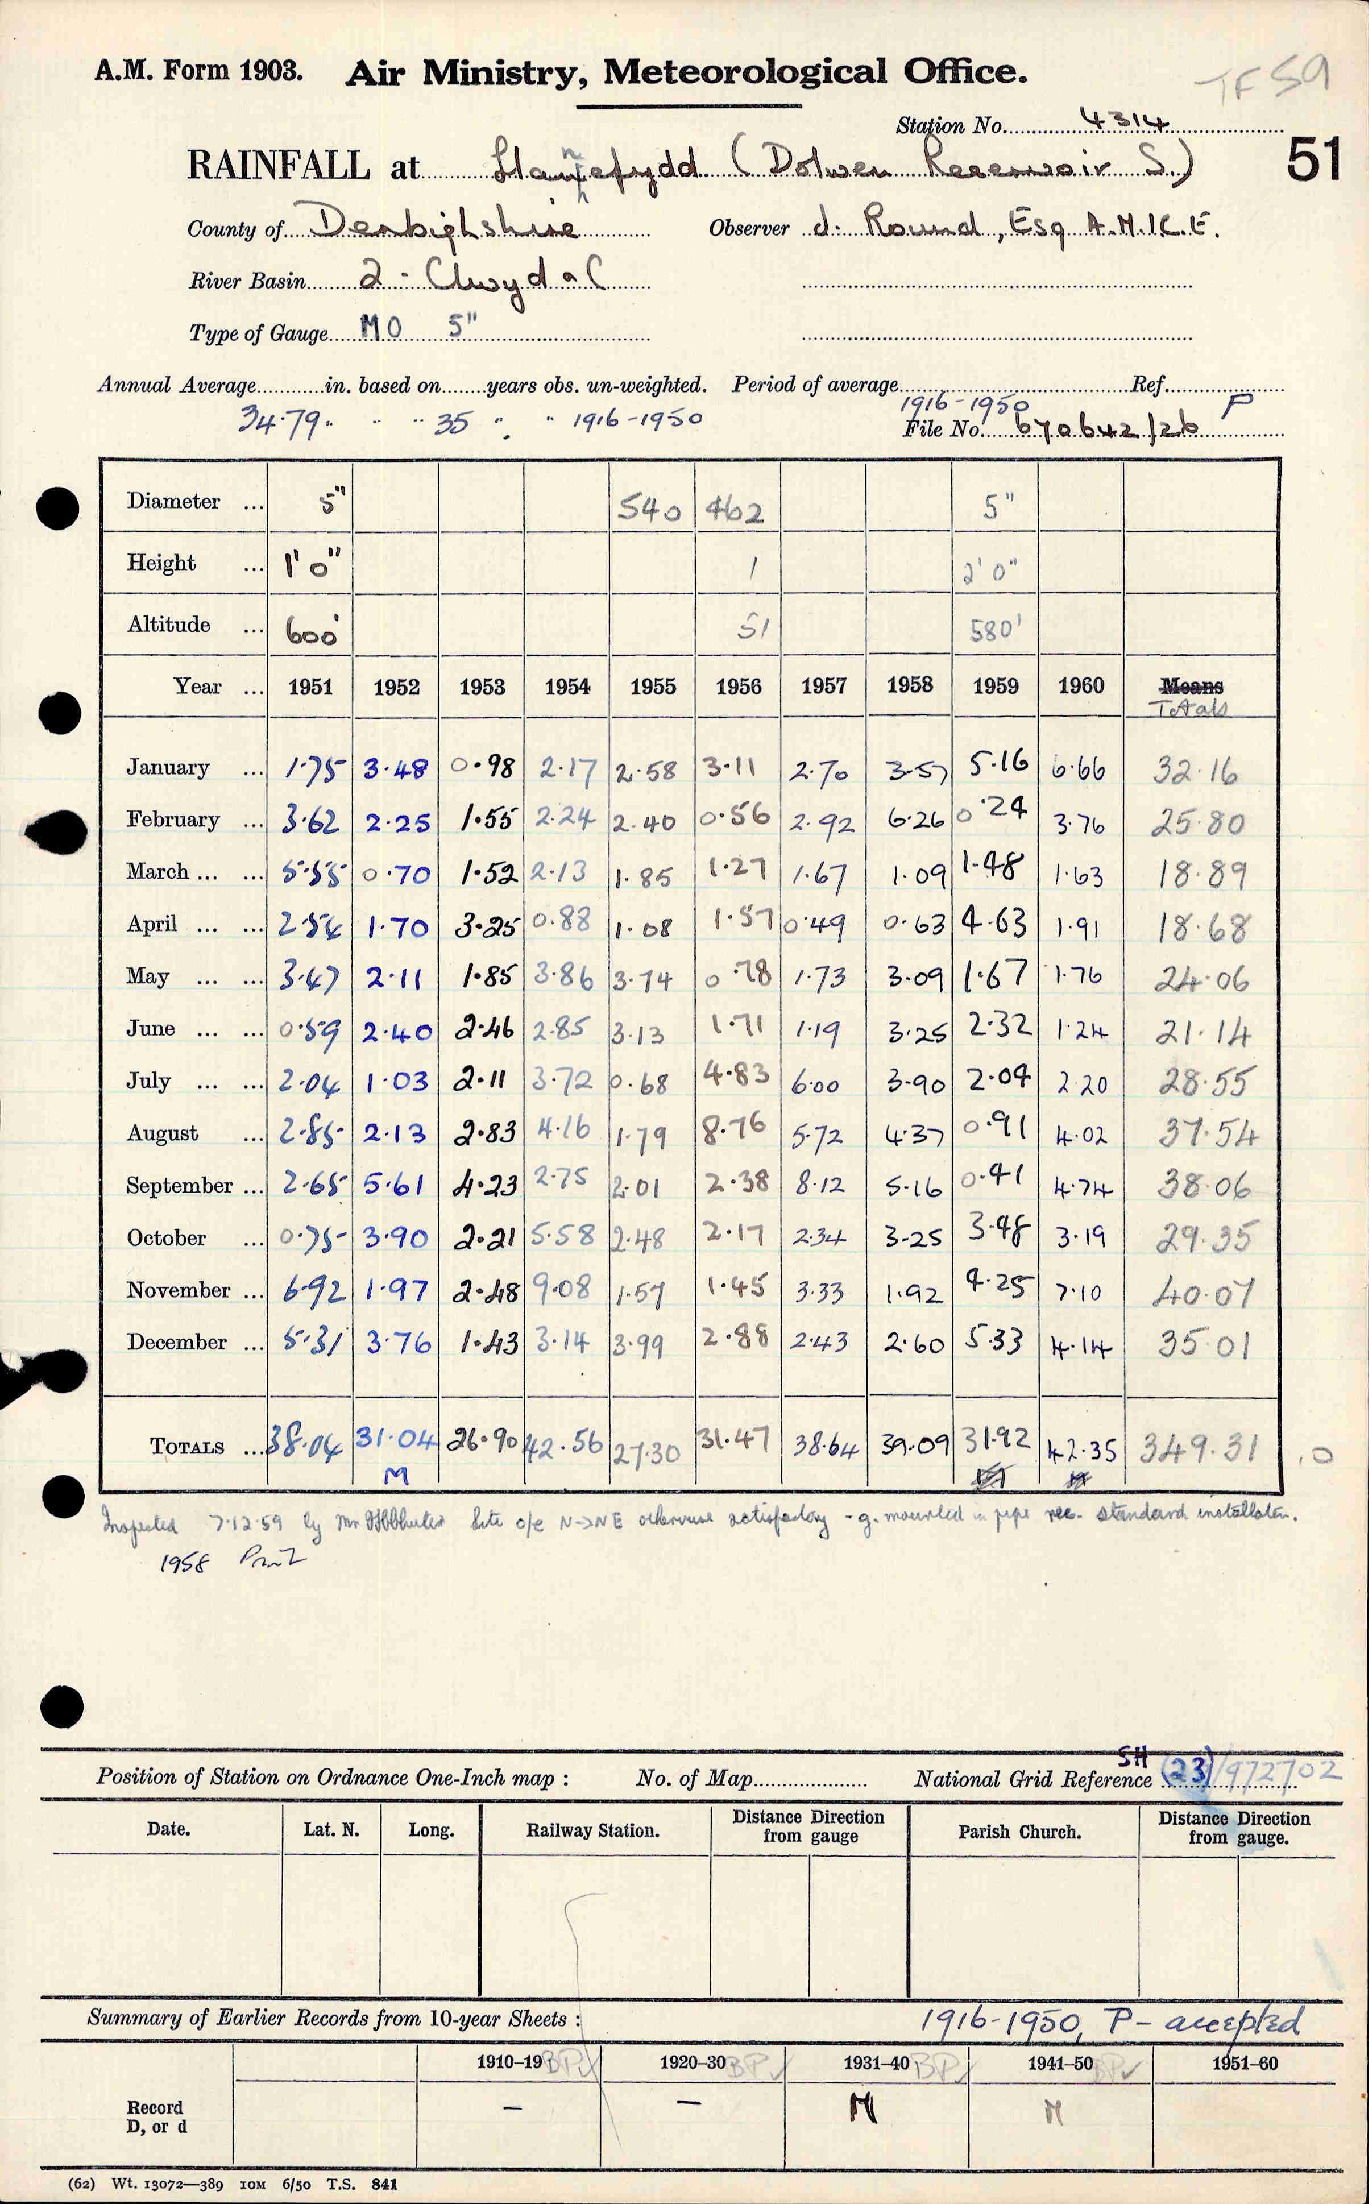 A.M. Form 1903. Air Ministry, Meteorological Office. TF 59
Station No. 4314
RAINFALL at Llannefydd (Dolwen Reservoir S.) 51
County of Denbighshire Observer J. Round, Esq A.M.I.C.E.
River Basin 2 - Clwyd a C
Type of Gauge MO 5"
Annual Average in. based on years obs. un-weighted. Period of average Ref.
34.79 " " " 35 " " 1916-1950 1916-1950 P
File No. 670642/26
Diameter ... 5" 540 462 5"
Height ... 1' 0" 1 2' 0"
Altitude ... 600' 51 580'
Year ... 1951 1952 1953 1954 1955 1956 1957 1958 1959 1960 Means
Totals
January ... 1.75 3.48 0.98 2.17 2.58 3.11 2.70 3.57 5.16 6.66 32.16
February ... 3.62 2.25 1.55 2.24 2.40 0.56 2.92 6.26 0.24 3.76 25.80
March ... ... 5.55 0.70 1.52 2.13 1.85 1.27 1.67 1.09 1.48 1.63 18.89
April ... ... 2.54 1.70 3.25 0.88 1.08 1.57 0.49 0.63 4.63 1.91 18.68
May ... ... 3.47 2.11 1.85 3.86 3.74 0.78 1.73 3.09 1.67 1.76 24.06
June ... ... 0.59 2.40 2.46 2.85 3.13 1.71 1.19 3.25 2.32 1.24 21.14
July ... ... 2.04 1.03 2.11 3.72 0.68 4.83 6.00 3.90 2.04 2.20 28.55
August ... 2.85 2.13 2.83 4.16 1.79 8.76 5.72 4.37 0.91 4.02 37.54
September ... 2.65 5.61 4.23 2.75 2.01 2.38 8.12 5.16 0.41 4.74 38.06
October ... 0.75 3.90 2.21 5.58 2.48 2.17 2.34 3.25 3.48 3.19 29.35
November ... 6.92 1.97 2.48 9.08 1.57 1.45 3.33 1.92 4.25 7.10 40.07
December ... 5.31 3.76 1.43 3.14 3.99 2.88 2.43 2.60 5.33 4.14 35.01
TOTALS ... 38.04 31.04 26.90 42.56 27.30 31.47 38.64 39.09 31.92 42.35 349.31 .0
M
Inspected 7.12.59 by Mr Site o/e N→NE otherwise satisfactory - g. mounted in pipe rec. standard installation.
1958 Print
Position of Station on Ordnance One-Inch map : No. of Map National Grid Reference SH (23)/972702
Date. Lat. N. Long. Railway Station. Distance Direction from gauge Parish Church. Distance Direction from gauge.
Summary of Earlier Records from 10-year Sheets : 1916-1950, P - accepted
1910–19 BP✓ 1920–30 BP✓ 1931–40 BP✓ 1941–50 BP✓ 1951–60
Record
D, or d – – M M
(62) Wt. 13072—389 10M 6/50 T.S. 841